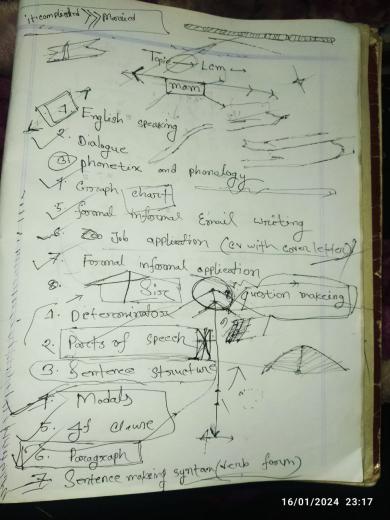 it's complicated >> Married
Topic → Lcm →
mam
1. English speaking
2. Dialogue
3. phonetix and phonology
4. Graph chart
5. formal informal Email writing
6. Job application (cv with cover letter)
7. Formal informal application
8. Six question makeing
1. Determinator
2. Parts of speech
3. Sentence structure
4. Modals
5. If clause
6. Paragraph
7. Sentence making syntax (verb form)
16/01/2024 23:17